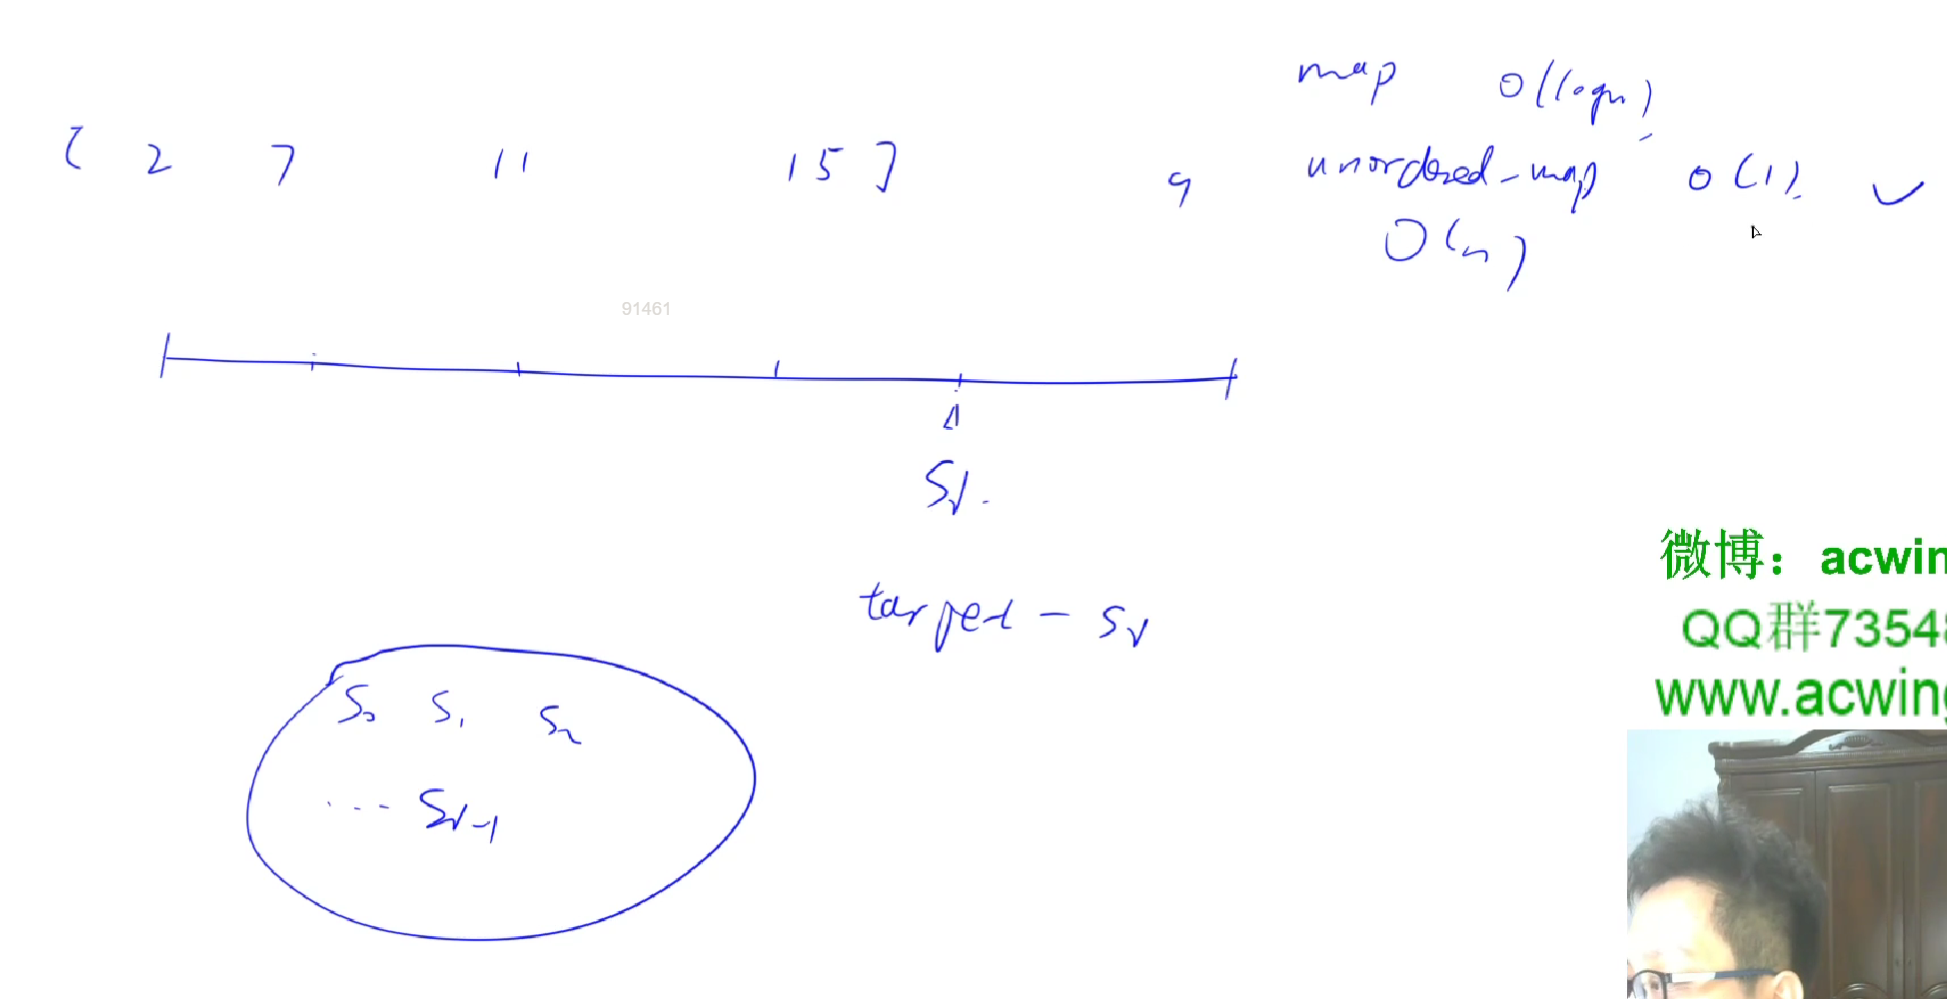 map O(logn)
[ 2 7 11 15 ] 9
unordered_map O(1)
O(n)
91461
target -
S0 S1 S2
微博：acwin
QQ群7354
www.acwing